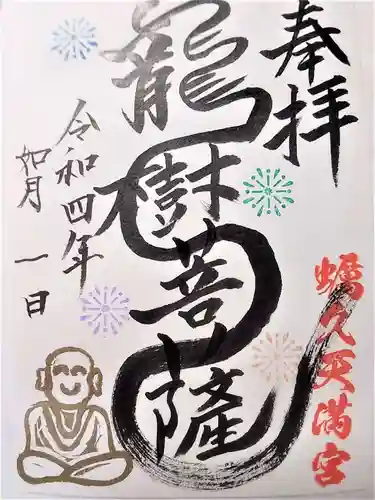 奉拝
龍樹菩薩
令和四年
如月 一日
蠣久天満宮